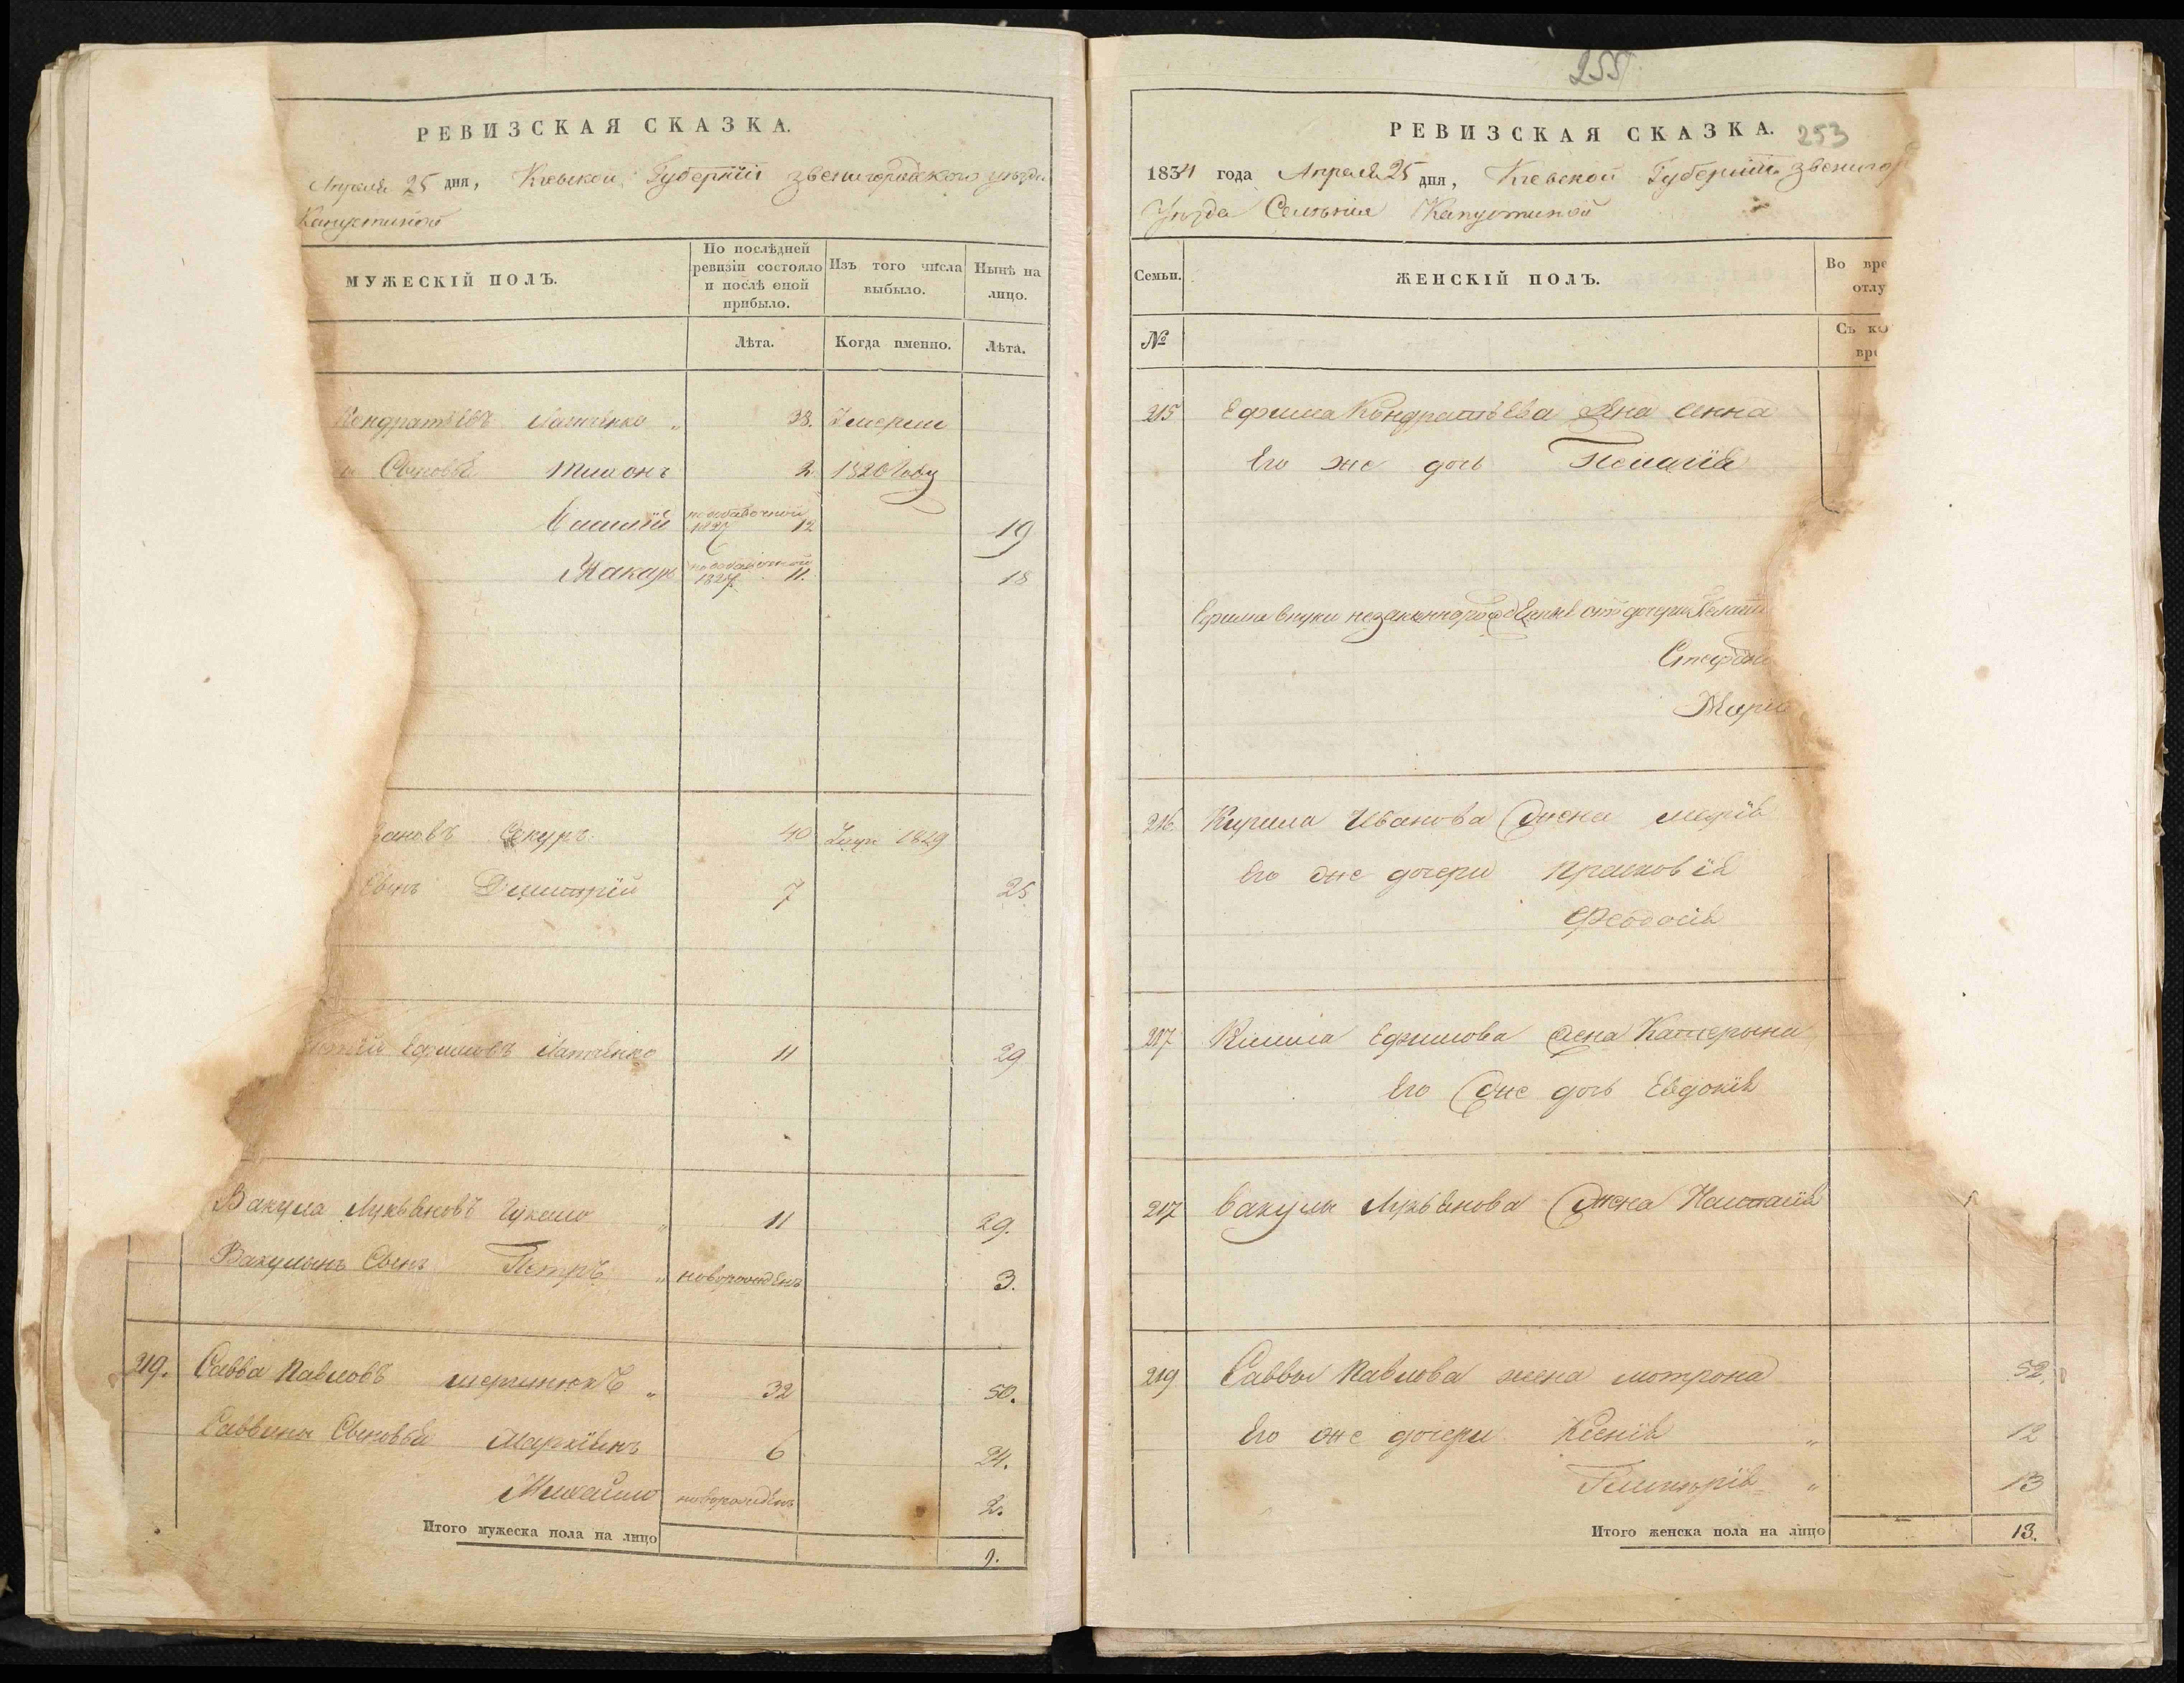 РЕВИЗСКАЯ СКАЗКА.
Апреля 25 дня, Кіевской Губерніи звенигородского уѣзда
Капустиной
МУЖЕСКІЙ ПОЛЪ.
По послѣдней ревизіи состояло и послѣ оной прибыло.
Изъ того числа выбыло.
Нынѣ на лицо.
Лѣта.
Когда именно.
Лѣта.
Кондратьевъ 38. Умерши
Сыновья 2. 1820 Году
1827 12 19
Макаръ 1827 11. 18
40 1829
Сынъ Дмитрій 7 25
Ефимовъ 11 29
Вакула Лукьяновъ 11 29.
Вакулынъ Сынъ Петръ новорожденъ 3.
219. Савва Павловъ 32 50.
Саввины Сыновья 6 24.
Михайло новорожденъ 2.
Итого мужеска пола на лицо 9.
255
253
РЕВИЗСКАЯ СКАЗКА.
1834 года Апреля 25 дня, Кіевской Губерніи звенигор
Уѣзда Селѣнія Капустиной
Семьи.
ЖЕНСКІЙ ПОЛЪ.
Во вре
отлу
№
Съ ко
вре
215 Ефима Кондратьева жена Анна
Его же дочь Пелагія
Ефима внуки незаконнорожденные отъ дочери Пелагіи
Стефан
Марія
216 Кирила Иванова жена Марія
Его же дочери Прасковія
Феодосія
217 Ефимова жена Катерына
Его же дочь Евдокія
217 Вакулы Лукьянова жена Настасія
219 Саввы Павлова жена мотрона 52.
Его же дочери Ксенія " 12
" 13
Итого женска пола на лицо 13.